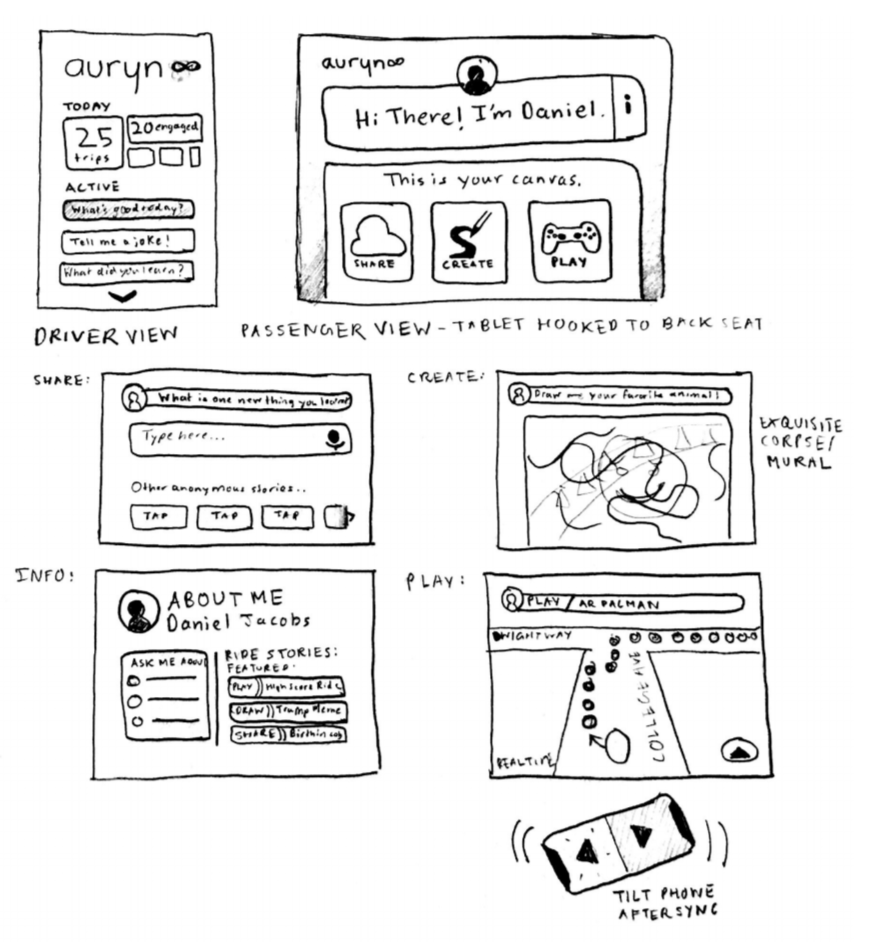 auryn∞
TODAY
25
trips
20 engaged
ACTIVE
What's good today?
Tell me a joke!
What did you learn?
DRIVER VIEW
auryn∞
Hi There! I'm Daniel.
i
This is your canvas.
SHARE
CREATE
PLAY
PASSENGER VIEW - TABLET HOOKED TO BACK SEAT
SHARE:
What is one new thing you learned
Type here...
Other anonymous stories..
TAP
TAP
TAP
CREATE:
Draw your favorite animal!
EXQUISITE
CORPSE/
MURAL
INFO:
ABOUT ME
Daniel Jacobs
ASK ME ABOU
RIDE STORIES:
FEATURED:
PLAY)) High Score Ride
DRAW)) Trump Meme
SHARE)) Birth in cab
PLAY:
PLAY / AR PACMAN
DWIGHT WAY
COLLEGE AVE
REALTIME
TILT PHONE
AFTER SYNC